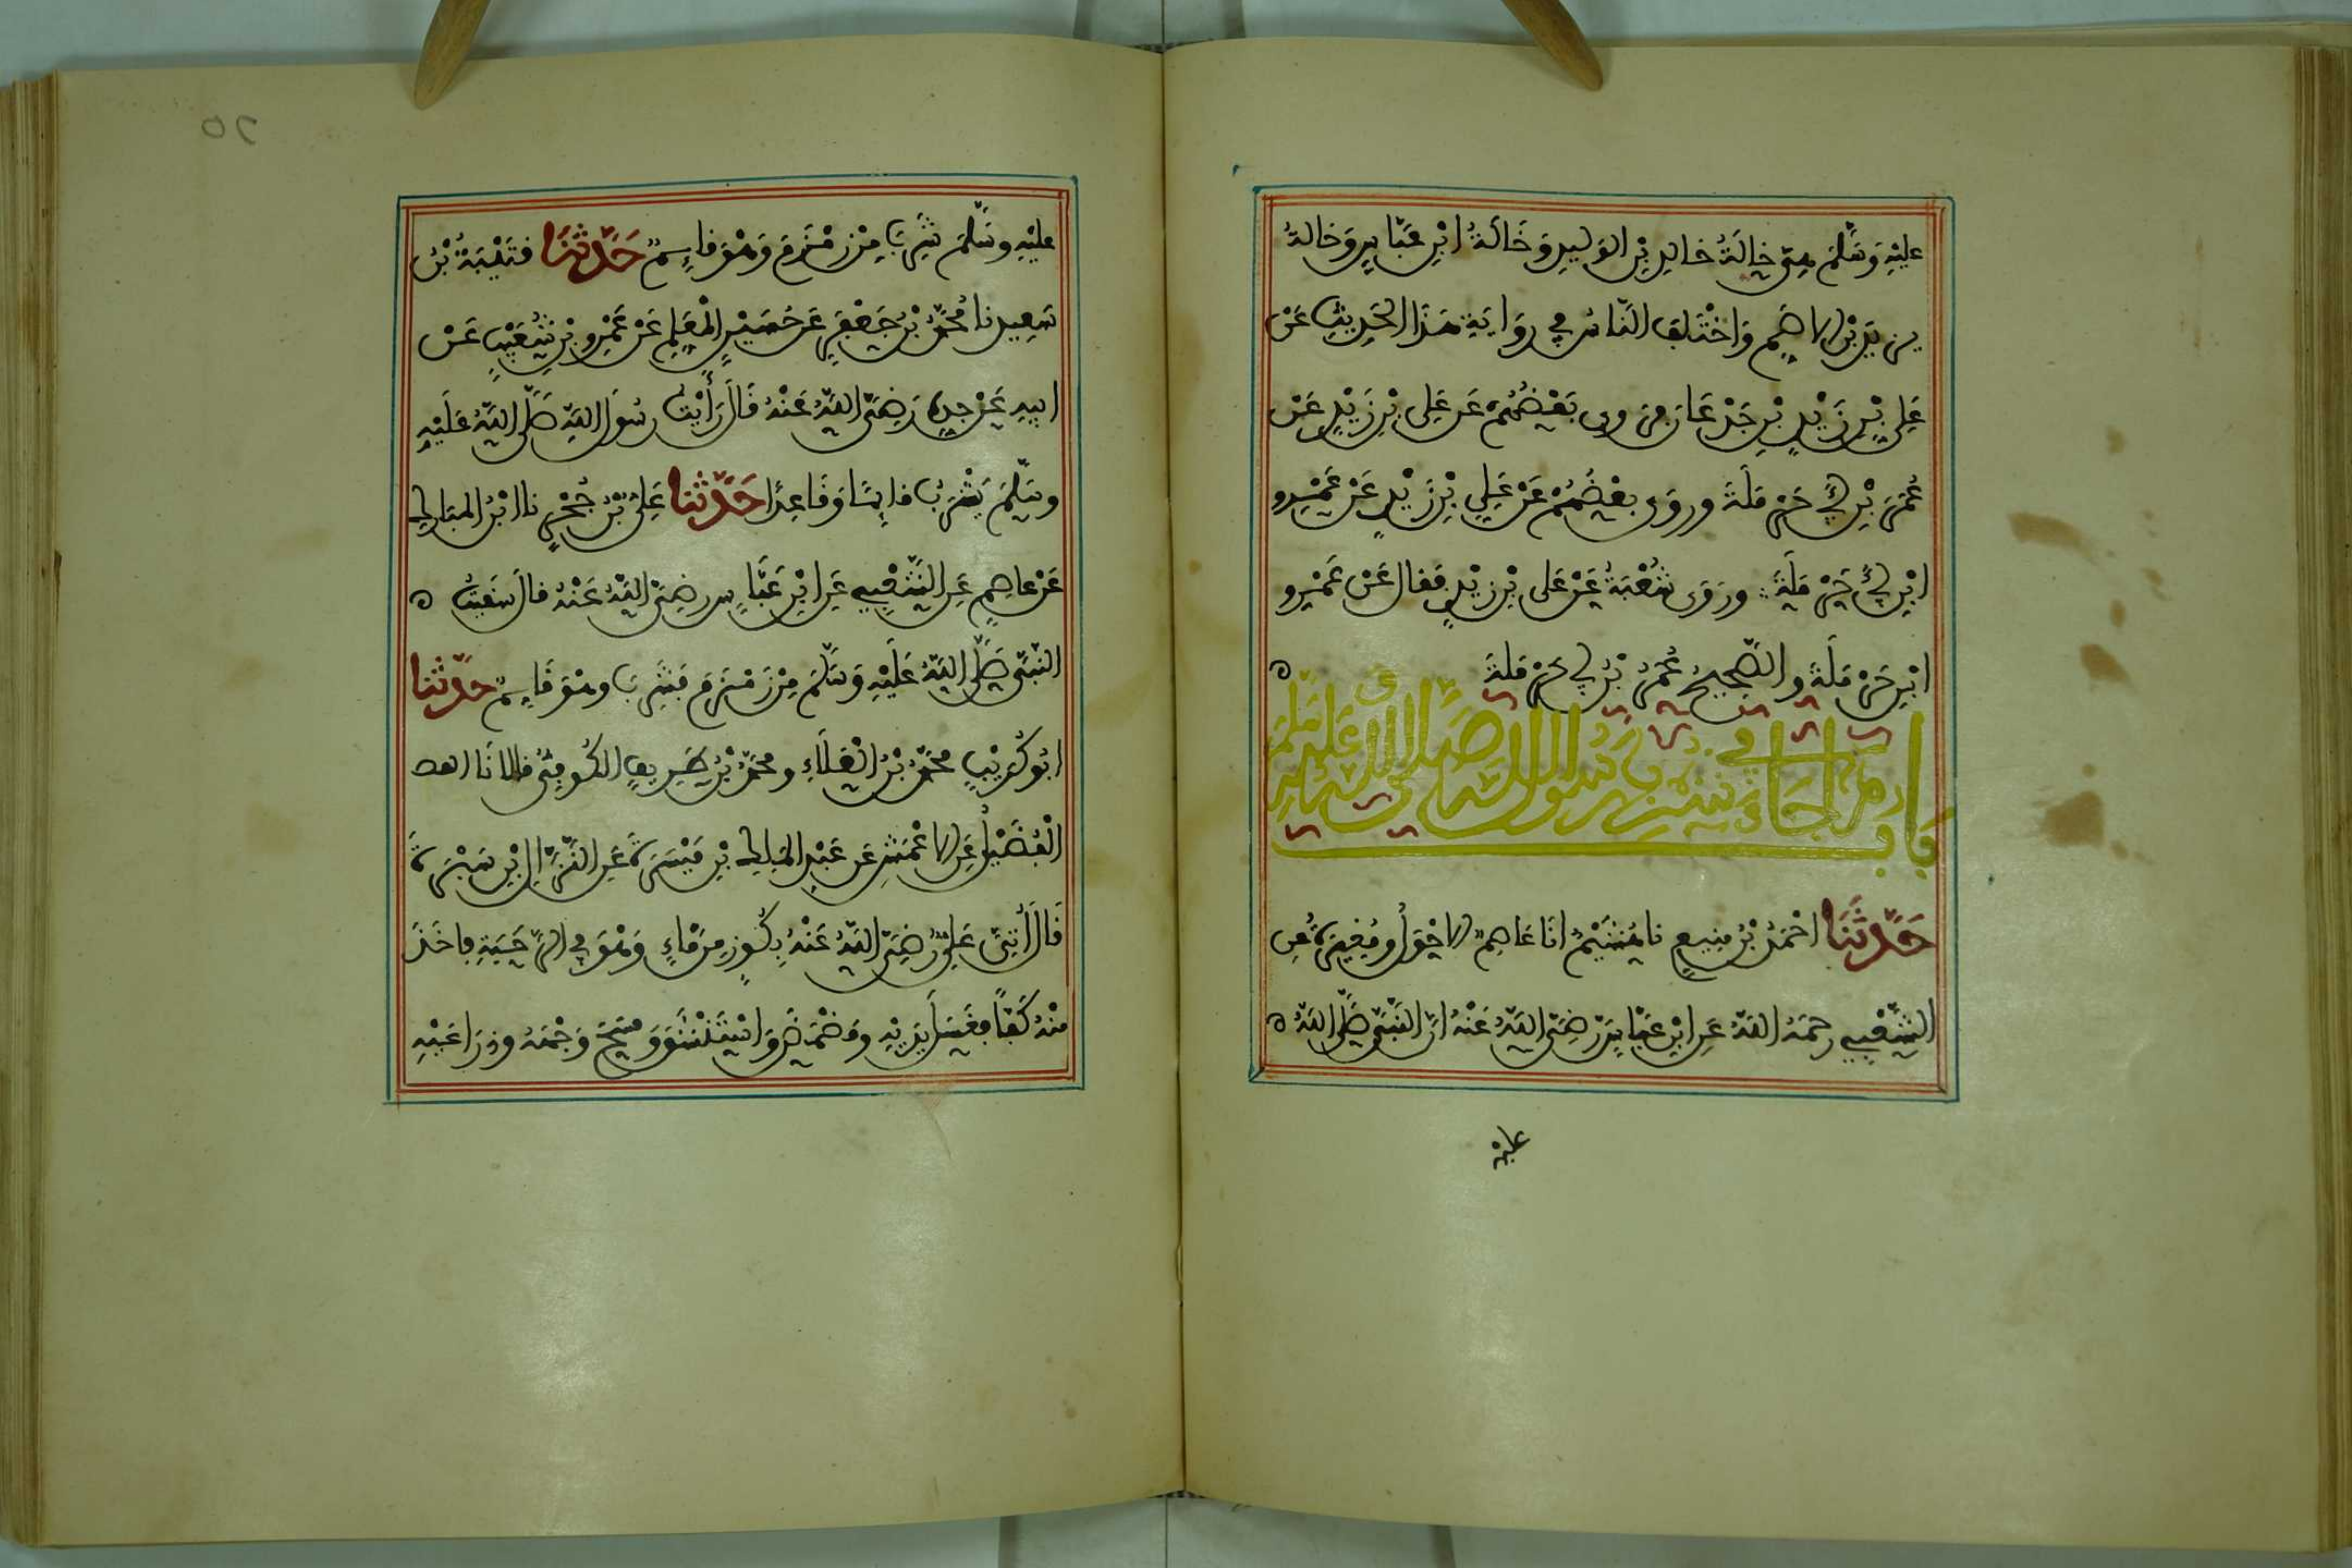 عليْهِ وَسَلَّمَ هِيَ خَالَةُ خالِدِ بْنِ الوَلِيدِ وَخَالَةُ ابْنِ عَبَّاسٍ وَخالةُ
يزيدَ بْنِ الاصَمِّ وَاخْتَلَفَ النَّاسُ فِي رِوَايَةِ هَذَا الحَدِيثِ عَنْ
عَلِيِّ بْنِ زَيْدِ بْنِ جَدْعَانَ فَرَوى بَعْضُهُمْ عَن عَلِي بْنِ زَيْدٍ عَنْ
عُمَرَ بْنِ أَبِي حَرْمَلَةَ وروَى بعْضُهُمْ عَنْ عَلِي بْنِ زَيْدٍ عَنْ عَمْرِو
ابْنِ أَبِي حَرْمَلَةَ ؞ ورَوَى شُعْبَةُ عَنْ عَلى بْنِ زيْدٍ فَقال عَنْ عَمْرِو
ابْنِ حَرْمَلَةَ والصَّحِيحُ عُمَرُ بْنُ أَبِي حَرْمَلةَ ه
بابُ مَا جَاءَ فِي شُرْبِ رَسُولِ اللهِ صَلَّى اللهُ عَلَيْهِ وَسَلَّمَ
حَدَّثَنَا احْمَدُ بْنُ مَنِيعٍ نا هُشَيْمٌ انَا عَاصِمٌ الاحْوَلُ ومُغِيرَةُ عَنِ
الشَّعْبِيِّ رحمَهُ اللهُ عَنِ ابْنِ عَبَّاسٍ رَضِيَ اللهُ عَنْهُ انَّ النَّبِيَّ صَلَّى اللهُ ه
عليْه
٥٢
عليْهِ وسَلَّمَ شَرِبَ مِنْ زَمْزَمَ وَهْوَ قَائِمٌ حَدَّثَنَا قُتَيْبَةُ بْنُ
سَعِيدٍ نا مُحَمَّدُ بْنُ جَعْفَرٍ عَن حُسَيْنٍ الْمُعَلِّمِ عَنْ عَمْرِو بْنِ شُعَيْبٍ عَنْ
ابِيهِ عَنْ جدِّهِ رَضِيَ اللهُ عَنْهُ قَالَ رَأَيْتُ رسُولَ اللهِ صَلَّى اللهُ عَلَيْهِ
وسَلَّمَ يَشْرَبُ قَائِمًا وَقَاعِدًا حَدَّثنا عَلِيُّ بْنُ حُجْرٍ نا ابْنُ المبَارك
عَنْ عاصِمٍ عَنِ الشَّعْبِيِّ عَنِ ابْنِ عَبَّاسٍ رضِيَ اللهُ عَنْهُ قال سَقَيْتُ ه
النَّبِيَّ صَلَّى اللهُ عَلَيْهِ وَسَلَّمَ مِنْ زَمْزَمَ فَشَرِبَ وهْوَ قَائِمٌ حدَّثنا
ابُو كُرَيْبٍ محَمَّدُ بْنُ الْعَلَاءِ ومحَمَّدُ بْنُ طَرِيفٍ الكُوفِيُّ قالا انَا ابن
الْفُضَيْلِ عَنِ الاعْمَشِ عَن عَبْدِ المَلِكِ بْنِ مَيْسَرَةَ عَنِ النَّزَّالِ بْنِ سَبْرَةَ
قَالَ أُتِيَ عَلِيٌّ رَضِيَ اللهُ عَنْهُ بِكُوزٍ مِنْ مَاءٍ وَهْوَ فِي الرَّحَبَةِ فَاخَذَ
مِنْهُ كَفًّا فَغَسَلَ يَدَيْهِ وَمَضْمَضَ وَاسْتَنْشَقَ وَمَسَحَ وَجْهَهُ وذِرَاعَيْهِ